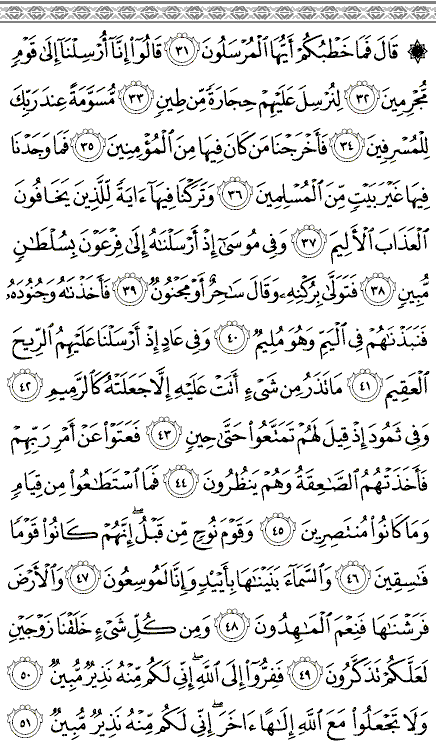 ۞ قَالَ فَمَا خَطْبُكُمْ أَيُّهَا ٱلْمُرْسَلُونَ ٣١ قَالُوٓا۟ إِنَّآ أُرْسِلْنَآ إِلَىٰ قَوْمٍ
مُّجْرِمِينَ ٣٢ لِنُرْسِلَ عَلَيْهِمْ حِجَارَةً مِّن طِينٍ ٣٣ مُّسَوَّمَةً عِندَ رَبِّكَ
لِلْمُسْرِفِينَ ٣٤ فَأَخْرَجْنَا مَن كَانَ فِيهَا مِنَ ٱلْمُؤْمِنِينَ ٣٥ فَمَا وَجَدْنَا
فِيهَا غَيْرَ بَيْتٍ مِّنَ ٱلْمُسْلِمِينَ ٣٦ وَتَرَكْنَا فِيهَآ ءَايَةً لِّلَّذِينَ يَخَافُونَ
ٱلْعَذَابَ ٱلْأَلِيمَ ٣٧ وَفِى مُوسَىٰٓ إِذْ أَرْسَلْنَٰهُ إِلَىٰ فِرْعَوْنَ بِسُلْطَٰنٍ
مُّبِينٍ ٣٨ فَتَوَلَّىٰ بِرُكْنِهِۦ وَقَالَ سَٰحِرٌ أَوْ مَجْنُونٌ ٣٩ فَأَخَذْنَٰهُ وَجُنُودَهُۥ
فَنَبَذْنَٰهُمْ فِى ٱلْيَمِّ وَهُوَ مُلِيمٌ ٤٠ وَفِى عَادٍ إِذْ أَرْسَلْنَا عَلَيْهِمُ ٱلرِّيحَ
ٱلْعَقِيمَ ٤١ مَا تَذَرُ مِن شَىْءٍ أَتَتْ عَلَيْهِ إِلَّا جَعَلَتْهُ كَٱلرَّمِيمِ ٤٢
وَفِى ثَمُودَ إِذْ قِيلَ لَهُمْ تَمَتَّعُوا۟ حَتَّىٰ حِينٍ ٤٣ فَعَتَوْا۟ عَنْ أَمْرِ رَبِّهِمْ
فَأَخَذَتْهُمُ ٱلصَّٰعِقَةُ وَهُمْ يَنظُرُونَ ٤٤ فَمَا ٱسْتَطَٰعُوا۟ مِن قِيَامٍ
وَمَا كَانُوا۟ مُنتَصِرِينَ ٤٥ وَقَوْمَ نُوحٍ مِّن قَبْلُ ۖ إِنَّهُمْ كَانُوا۟ قَوْمًا
فَٰسِقِينَ ٤٦ وَٱلسَّمَآءَ بَنَيْنَٰهَا بِأَيْي۟دٍ وَإِنَّا لَمُوسِعُونَ ٤٧ وَٱلْأَرْضَ
فَرَشْنَٰهَا فَنِعْمَ ٱلْمَٰهِدُونَ ٤٨ وَمِن كُلِّ شَىْءٍ خَلَقْنَا زَوْجَيْنِ
لَعَلَّكُمْ تَذَكَّرُونَ ٤٩ فَفِرُّوٓا۟ إِلَى ٱللَّهِ ۖ إِنِّى لَكُم مِّنْهُ نَذِيرٌ مُّبِينٌ ٥٠
وَلَا تَجْعَلُوا۟ مَعَ ٱللَّهِ إِلَٰهًا ءَاخَرَ ۖ إِنِّى لَكُم مِّنْهُ نَذِيرٌ مُّبِينٌ ٥١